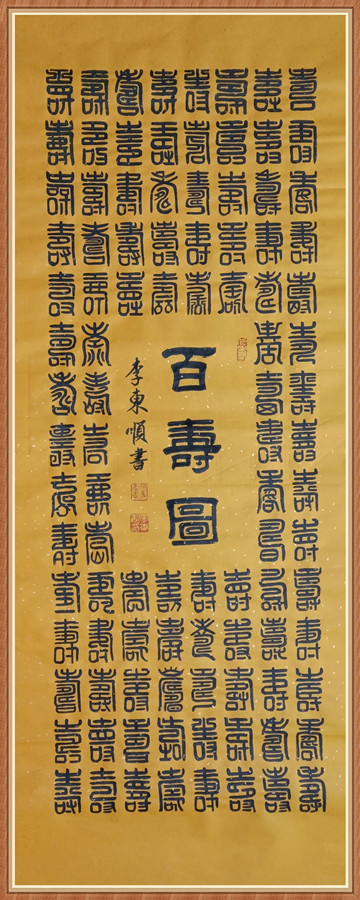 壽壽壽壽壽壽壽壽壽壽壽壽壽壽壽
壽壽壽壽壽壽壽壽壽壽壽壽壽壽壽
壽壽壽壽壽
壽壽壽壽壽
壽壽壽壽壽
壽壽壽壽壽
百壽圖
李東順書
壽壽壽壽壽
壽壽壽壽壽
壽壽壽壽壽
壽壽壽壽壽
壽壽壽壽壽壽壽壽壽壽壽壽壽壽壽
壽壽壽壽壽壽壽壽壽壽壽壽壽壽壽